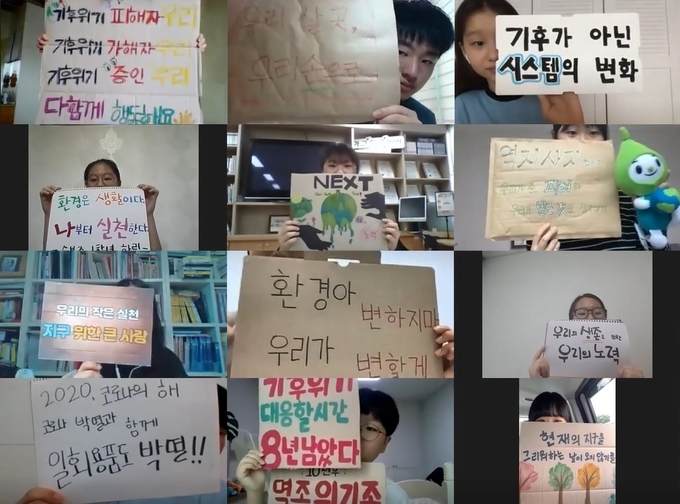 기후위기 피해자 우리
기후위기 가해자 우리
기후위기 증인 우리
다함께 행동해요
우리 살 곳,
우리 손으로
기후가 아닌
시스템의 변화
환경은 생활이다
나부터 실천한다
NEXT
역지사지
우리의 작은 실천
지구 위한 큰 사랑
환경아
변하지마
우리가
변할게
우리의 생존을 위한
우리의 노력
2020. 코로나의 해
코로나 박멸과
함께
일회용품도 박멸!!
기후위기
대응할시간
8년남았다
10년후
멸종위기종
현재의 지구를
그리워하는 날이 오지 않기를